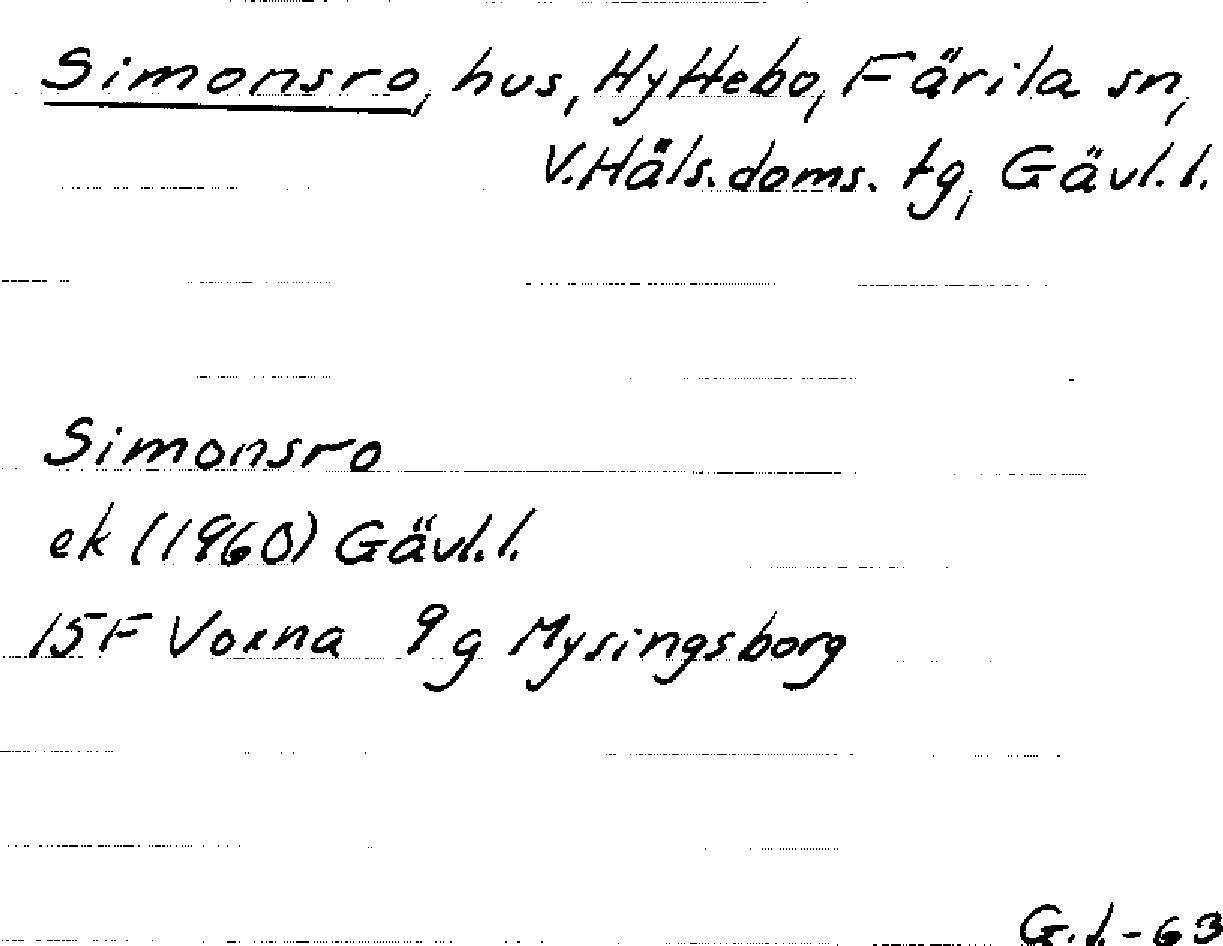 Simonsro, hus, Hyttebo, Färila sn,
V.Häls.doms. tg, Gävl.l.
Simonsro
ek (1960) Gävl.l.
15F Voxna 9g Mysingsborg
G.J-63